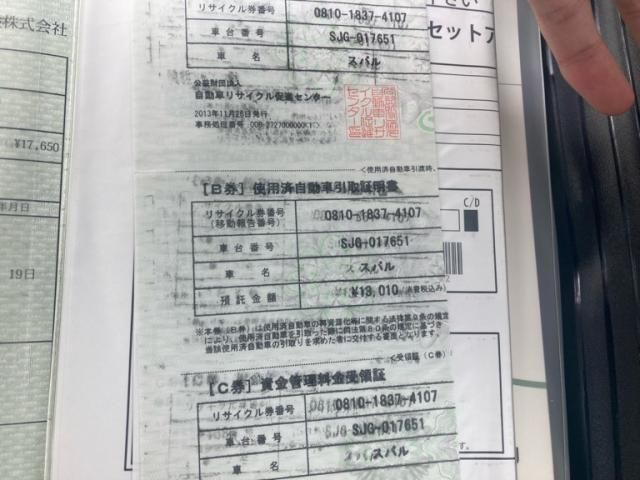 リサイクル券番号 0810-1837-4107
車台番号 SJG-017651
車名 スバル
公益財団法人
自動車リサイクル促進センター
2013年11月26日発行
<使用済自動車引取時、
[B券]使用済自動車引取証明書
リサイクル券番号
(移動報告番号) 0810-1837-4107
車台番号 SJG-017651
車名 スバル
預託金額 ¥13,010(消費税込み)
※本券(B券)は使用済自動車の再資源化等に関する法律第9条の規定
により、使用済自動車を引取った際に同法第80条の規定に基づき
当該使用済自動車の引取りを求めた者に交付する書面となります。
<受領証(C券)
[C券]資金管理料金受領証
リサイクル券番号 0810-1837-4107
車台番号 SJG-017651
車名 スバル
株式会社
¥17,650
年月日
19日
さい
セットア
C/D